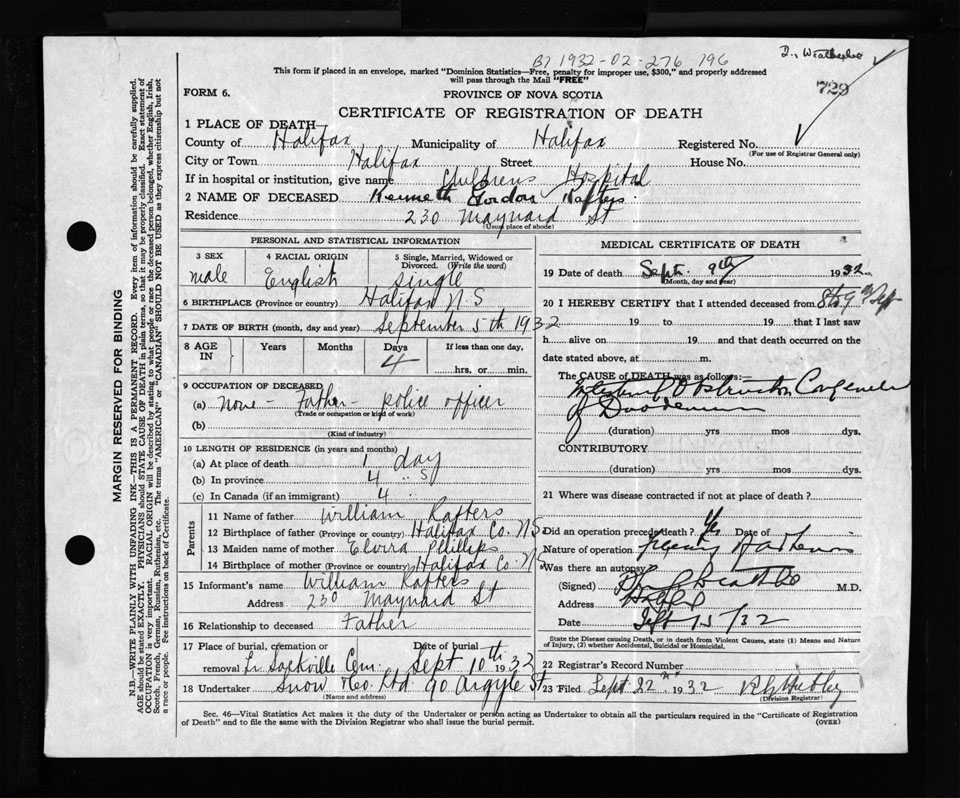 B1 1932-02-276 196
D., Weatherbe
This form if placed in an envelope, marked "Dominion Statistics—Free, penalty for improper use, $300," and properly addressed
will pass through the Mail "FREE"
729
FORM 6.
PROVINCE OF NOVA SCOTIA
CERTIFICATE OF REGISTRATION OF DEATH
1 PLACE OF DEATH—
County of Halifax Municipality of Halifax Registered No.
(For use of Registrar General only)
City or Town Halifax Street House No.
If in hospital or institution, give name Childrens Hospital
2 NAME OF DECEASED Kenneth Gordon Rafters
Residence 230 Maynard St
(Usual place of abode)
PERSONAL AND STATISTICAL INFORMATION
3 SEX 4 RACIAL ORIGIN 5 Single, Married, Widowed or Divorced. (Write the word)
male English Single
6 BIRTHPLACE (Province or country) Halifax N.S
7 DATE OF BIRTH (month, day and year) September 5th 1932
8 AGE IN Years Months Days If less than one day,
4 hrs. or min.
9 OCCUPATION OF DECEASED
(a) None - Father - police officer
(Trade or occupation or kind of work)
(b)
(Kind of industry)
10 LENGTH OF RESIDENCE (in years and months)
(a) At place of death 1 day
(b) In province 4 " s
(c) In Canada (if an immigrant) 4 "
Parents
11 Name of father William Rafters
12 Birthplace of father (Province or country) Halifax Co. N.S
13 Maiden name of mother Elvira Phillips
14 Birthplace of mother (Province or country) Halifax Co. N.S
15 Informant's name William Rafters
Address 230 Maynard St
16 Relationship to deceased Father
17 Place of burial, cremation or Date of burial
removal Lr Sackville Cem. Sept 10th 1932
18 Undertaker Snow & Co. Ltd 90 Argyle St
(Name and address)
MEDICAL CERTIFICATE OF DEATH
19 Date of death Sept. 9th 1932
(Month, day and year)
20 I HEREBY CERTIFY that I attended deceased from 8 to 9th Sept
19 to 19 that I last saw
h alive on 19 and that death occurred on the
date stated above, at m.
The CAUSE OF DEATH was as follows:—
Intestinal Obstruction
of Duodenum
(duration) yrs mos dys.
CONTRIBUTORY
(duration) yrs mos dys.
21 Where was disease contracted if not at place of death?
Did an operation precede death? Yes Date of
Nature of operation
Was there an autopsy?
(Signed) M.D.
Address
Date Sept 15/32
State the Disease causing Death, or in death from Violent Causes, state (1) Means and Nature
of Injury, (2) whether Accidental, Suicidal or Homicidal.
22 Registrars Record Number
23 Filed Sept 22nd 1932
(Division Registrar)
Sec. 46—Vital Statistics Act makes it the duty of the Undertaker or person acting as Undertaker to obtain all the particulars required in the "Certificate of Registration
of Death" and to file the same with the Division Registrar who shall issue the burial permit.
(OVER)
MARGIN RESERVED FOR BINDING
N.B.—WRITE PLAINLY WITH UNFADING INK—THIS IS A PERMANENT RECORD. Every item of information should be carefully supplied.
AGE should be stated EXACTLY. PHYSICIANS should STATE CAUSE OF DEATH in plain terms, so that it may be properly classified. Exact statement of
OCCUPATION is very important. RACIAL ORIGIN will be described by stating to what people or race the deceased person belonged, whether English, Irish,
Scotch, French, German, Russian, Ruthenian, etc. The terms "AMERICAN" or "CANADIAN" SHOULD NOT BE USED as they express citizenship but not
a race or people. Fee instructions on back of Certificate.